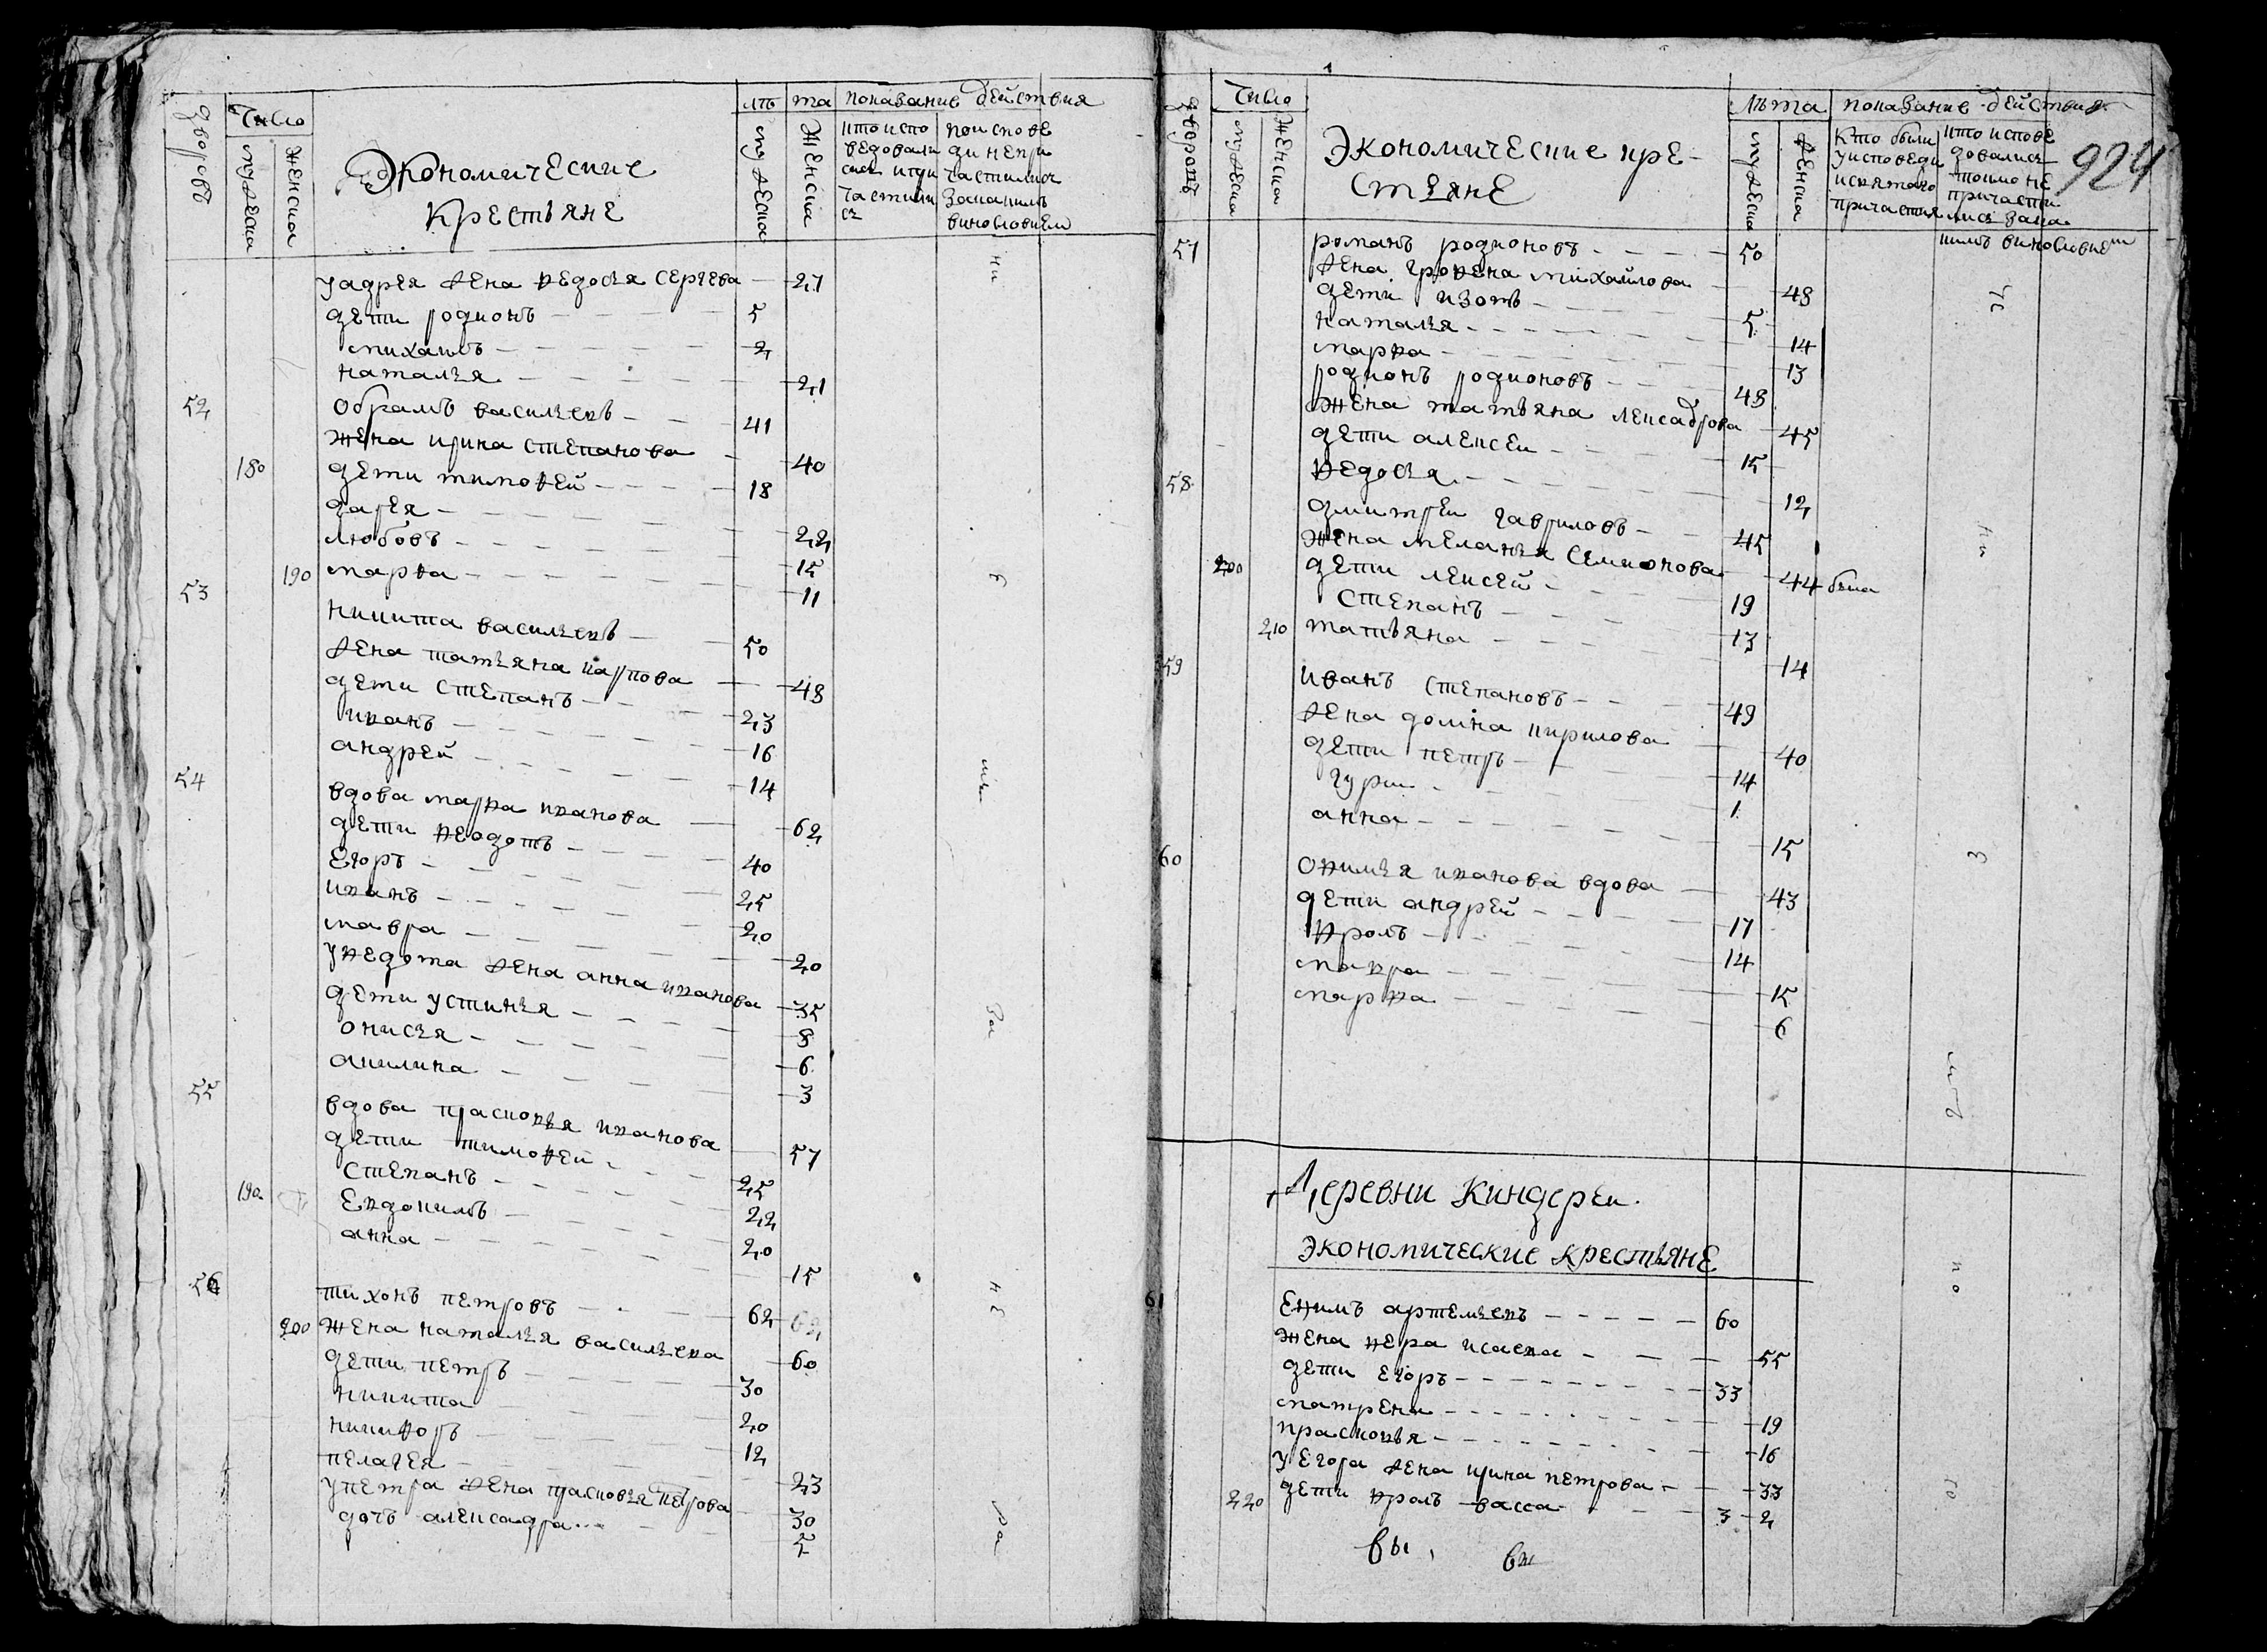 дворовъ
Число
мужеска
женска
Экономические
крестьяне
лѣ та
мужеска
женска
показание действия
кто испо
ведовали
ся и при
частили
ся
по испове
ди не при
частились
за какимъ
виновнием
уадрея жена федосья сергева 27
дети родионъ 5
михаилъ 2
наталья 21
52 обрамъ васильевъ 41
жена ирина степанова 40
180 дети тимофей 18
дарея 22
любовъ 15
190 марфа 11
53 никита васильевъ 50
жена татьяна карпова 48
дети степанъ 23
иванъ 16
андрей 14
54 вдова марфа иванова 62
дети феодотъ 40
егоръ 25
иванъ 20
мавра 20
уфедота жена анна иванова 35
дети устинья 8
онисья 6
акилина 3
55 вдова прасковья иванова 57
дети тимофеи 25
степанъ 22
190 евдокимъ 20
анна 15
56 тихонъ петровъ 62
200 жена наталья васильева 60
дети петръ 30
никита 20
никифоръ 12
пелагея 23
упетра жена прасковья петрова 30
дочъ алексадра 5
дворовъ
Число
мужеска
женска
Экономические кре-
стьяне
лѣта
мужеска
женска
показание действия
кто были
у исповеди
и святаго
причастия
кто испове
довались
токмо не
причасти
лися за ка
кимъ виновнием
924
57 романъ родионовъ 50
жена грофена михайлова 48
дети изотъ 5
наталья 14
марфа 13
родионъ родионовъ 48
жена татьяна лексадрова 45
дети алексеи 15
федосья 12
58 дмитреи гавриловъ 45
жена меланья семионова 44 была
200 дети лексей 19
степанъ 13
210 татьяна 14
59 иванъ степановъ 49
жена домна кирилова 40
дети петръ 14
гури 1
анна 15
60 офимья иванова вдова 43
дети андрей 17
фролъ 14
мавра 15
марфа 6
Деревни Киндереи
экономические крестьяне
61 ефимъ артемьевъ 60
жена фера исаева 55
дети егоръ 33
матрена 19
прасковья 16
у егора жена ирина петрова 33
220 дети фролъ васса 3 2
вы вы